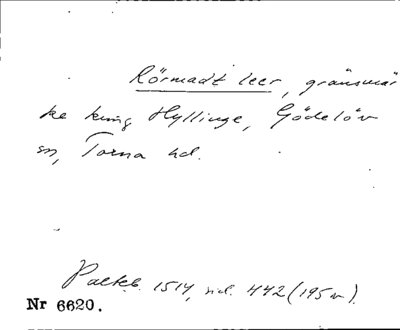 Rörmadt leer, gränsmär
ke kring Hyllinge, Gödelöv
sn, Torna hd.
Palteb. 1514, sid. 442 (195 v).
Nr 6620.